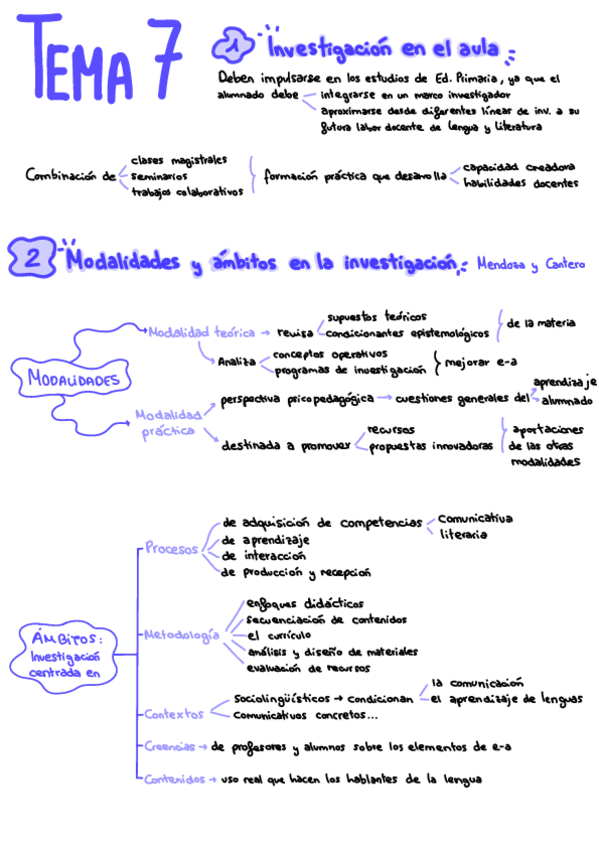 TEMA 7
1 Investigación en el aula
Deben impulsarse en los estudios de Ed. Primaria, ya que el
alumnado debe
integrarse en un marco investigador
aproximarse desde diferentes línear de inv. a su
futora labor docente de lengua y literatura
Combinación de
clases magistrales
seminarios
trabajos colaborativos
formación práctica que desarolla
capacidad creadora
habilidades docentes
2 Modalidades y ámbitos en la investigación: Mendoza y Cantero
MODALIDADES
Modalidad teórica → revisa
supuestos teóricos
condicionantes epistemológicos
de la materia
Analiza
conceptos operativos
programas de investigación
mejorar e-a
Modalidad
práctica
perspectiva psicopedagógica → cuestiones generales del
aprendizaje
alumnado
destinada a promover
recursos
propuestas innovadoras
aportaciones
de las otras
modalidades
ÁMBITOS:
Investigación
centrada en
Procesos
de adquisición de competencias
comunicativa
literaria
de aprendizaje
de interacción
de producción y recepción
Metodología
enfoques didácticos
secuenciación de contenidos
el currículo
análisis y diseño de materiales
evaluación de recursos
Contextos
Sociolingüísticos → condicionan
la comunicación
el aprendizaje de lenguas
comunicativos concretos...
Creencias → de profesores y alumnos sobre los elementos de e-a
Contenidos → uso real que hacen los hablantes de la lengua